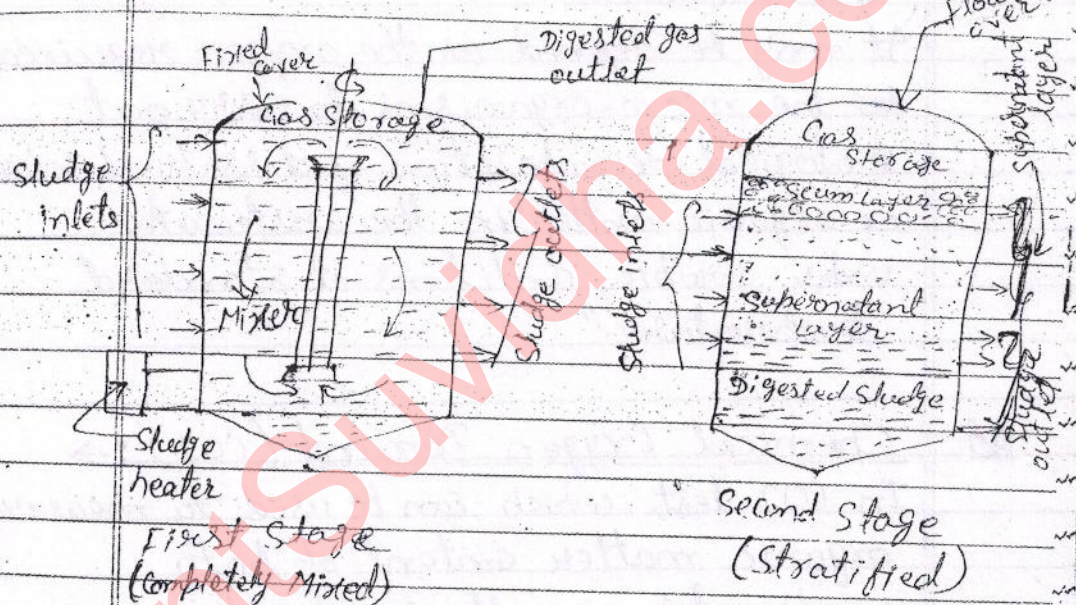 Digested gas
outlet
Fixed
cover
cover
Gas Storage
Sludge
inlets
Mixer
Sludge outlets
Sludge
heater
First Stage
(Completely Mixed)
Sludge inlets
Gas
Storage
Scum Layer
Supernatant
Layer
Digested Sludge
Supernatant
layer
Sludge
outlet
Second Stage
(Stratified)
ntSuvidha.co